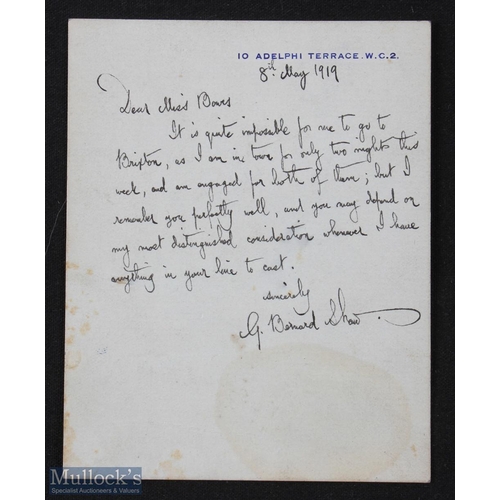 10 ADELPHI TERRACE. W.C.2.
8th May 1919
Dear Miss Bowes
It is quite impossible for me to go to
Brixton, as I am in town for only two nights this
week, and am engaged for both of them; but I
remember you perfectly well, and you may depend on
my most distinguished consideration whenever I have
anything in your line to cast.
sincerely
G. Bernard Shaw.
Mullock's
Specialist Auctioneers & Valuers